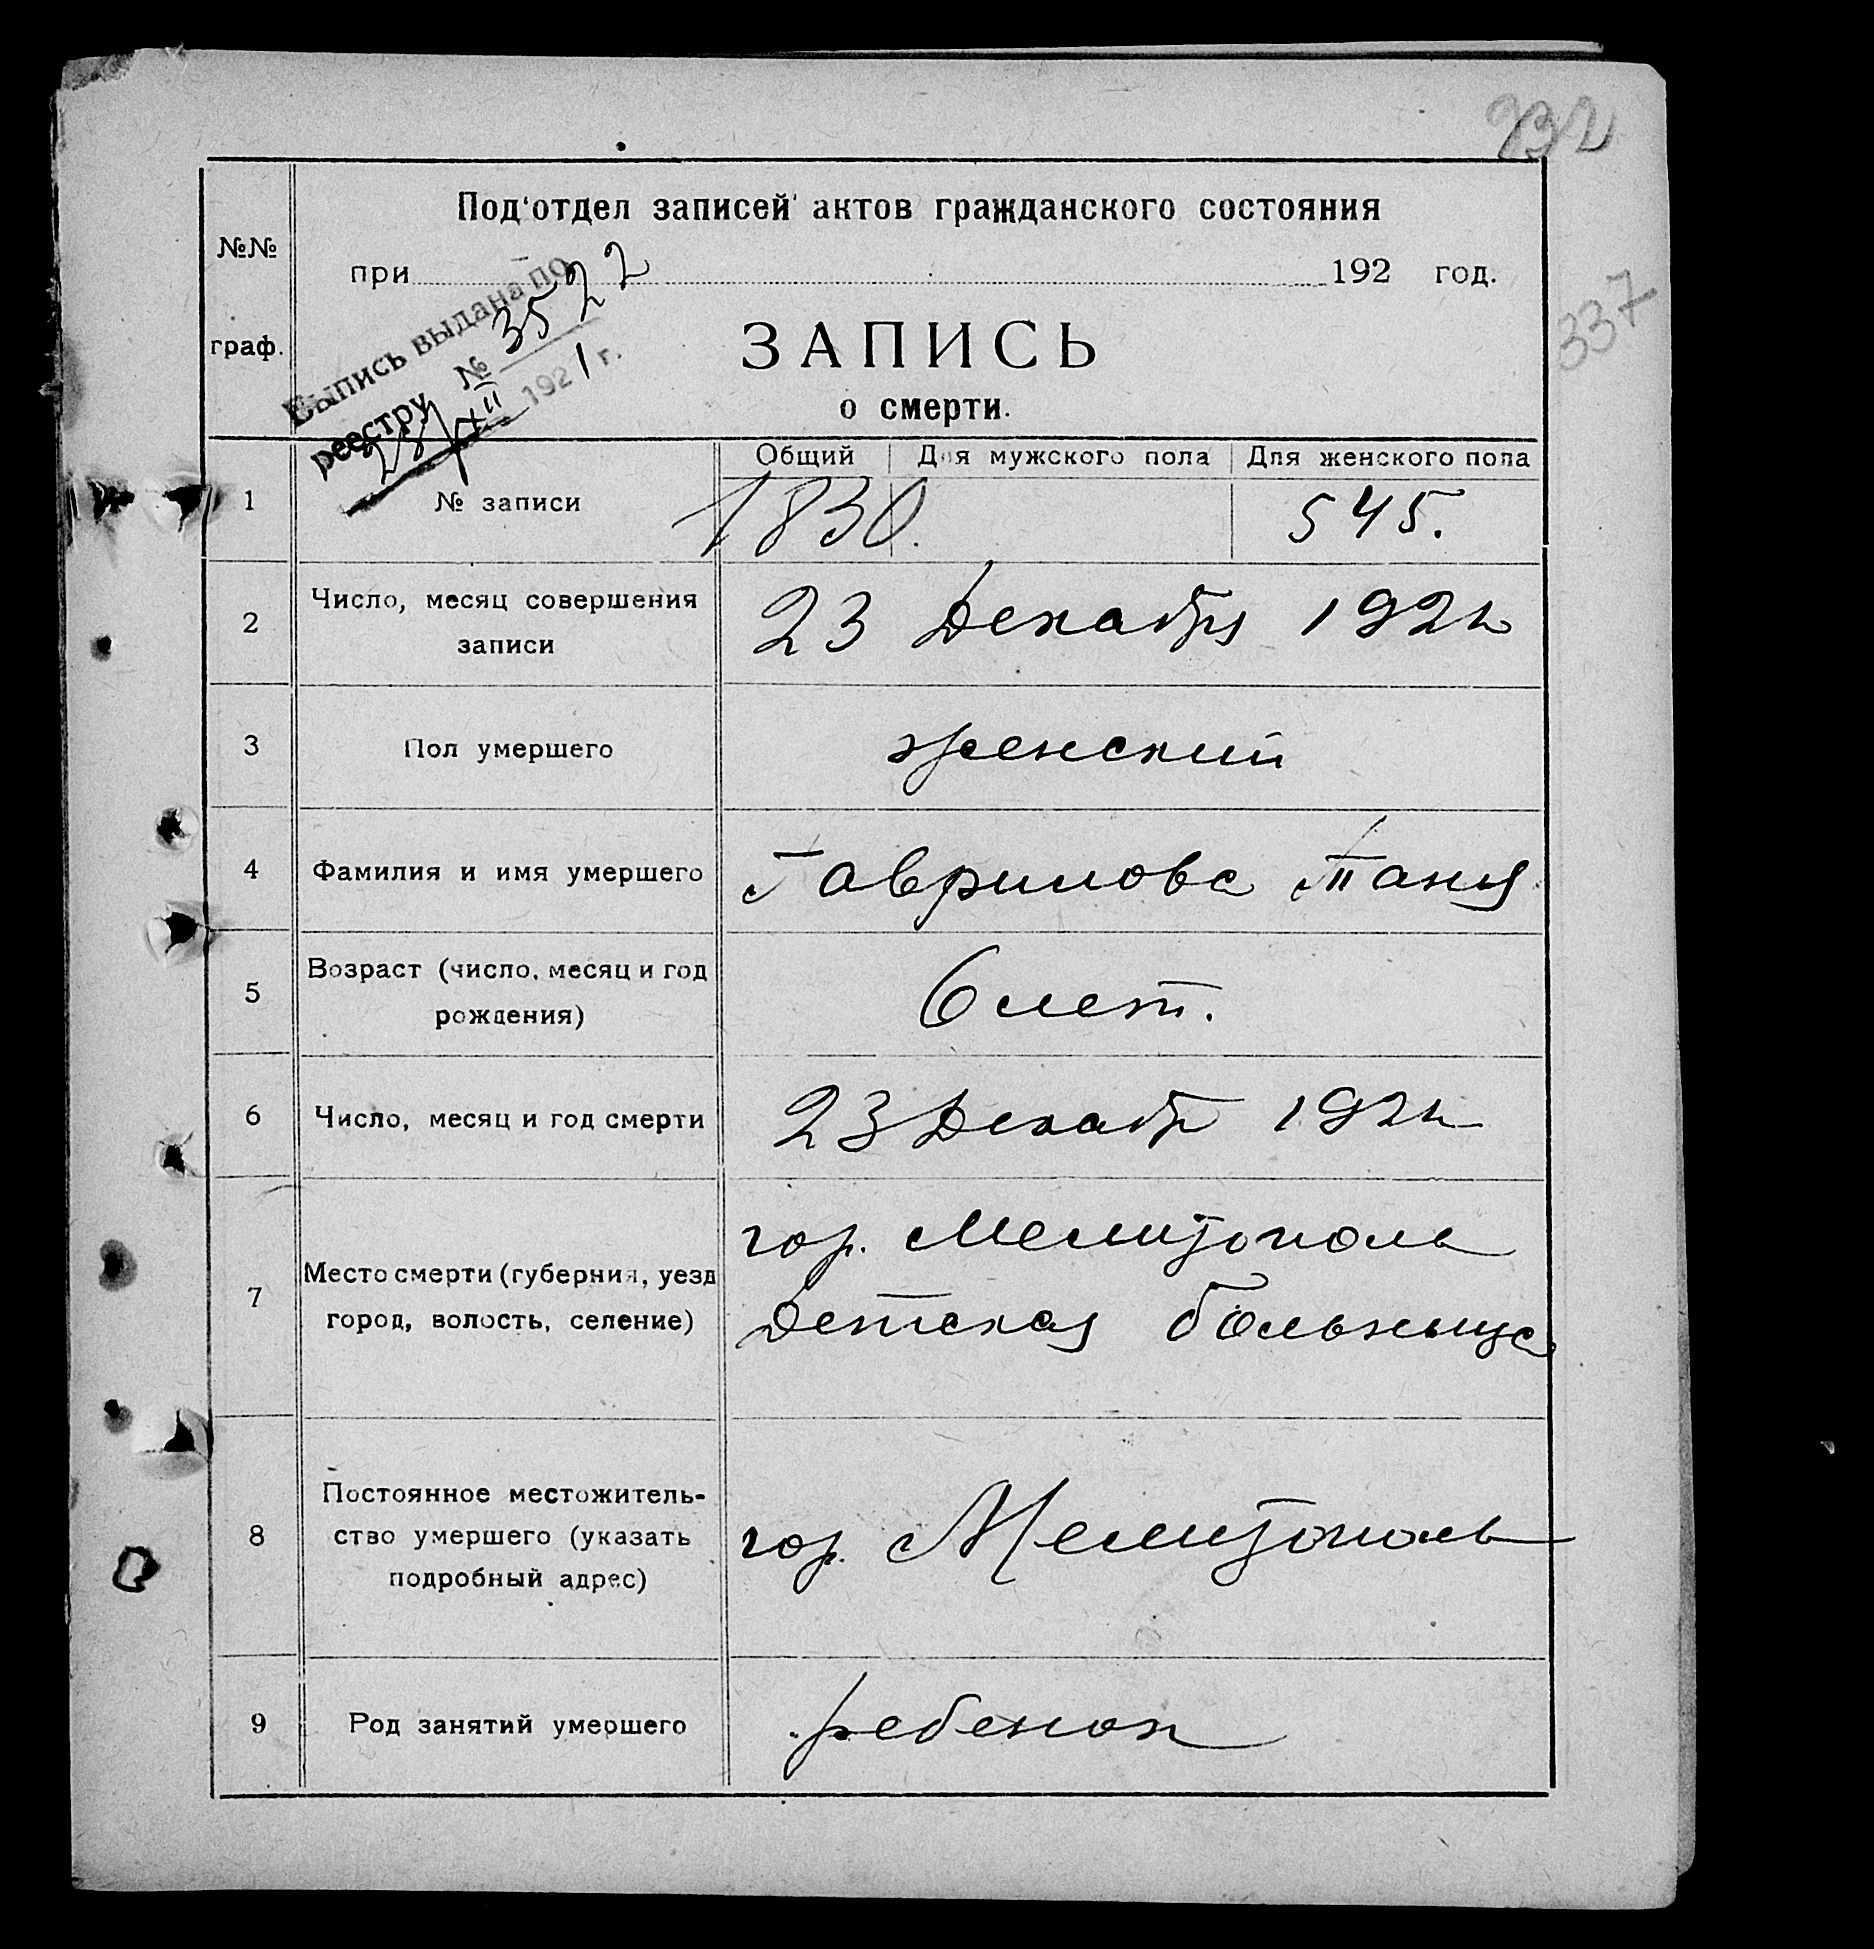 232
Под'отдел записей актов гражданского состояния
№№
при 192 год.
337
Выпись выдана по
реестру № 3522
23/XII 1921 г.
граф.
ЗАПИСЬ
о смерти.
Общий Для мужского пола Для женского пола
1 № записи 1830. 545.
2 Число, месяц совершения
записи
23 Декабря 1921
3 Пол умершего женский
4 Фамилия и имя умершего Гаврилова Таня
5 Возраст (число, месяц и год
рождения)
6 лет.
6 Число, месяц и год смерти 23 Декабр 1921
7 Место смерти (губерния, уезд
город, волость, селение)
гор. Мелитополь
Детская больныца
8 Постоянное местожитель-
ство умершего (указать
подробный адрес)
гор. Мелитополь
9 Род занятий умершего ребенок